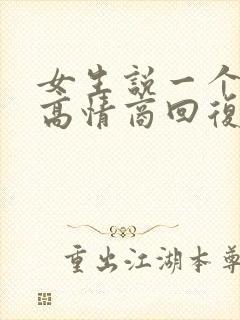 女生説一个
高情商回復
重出江湖本尊